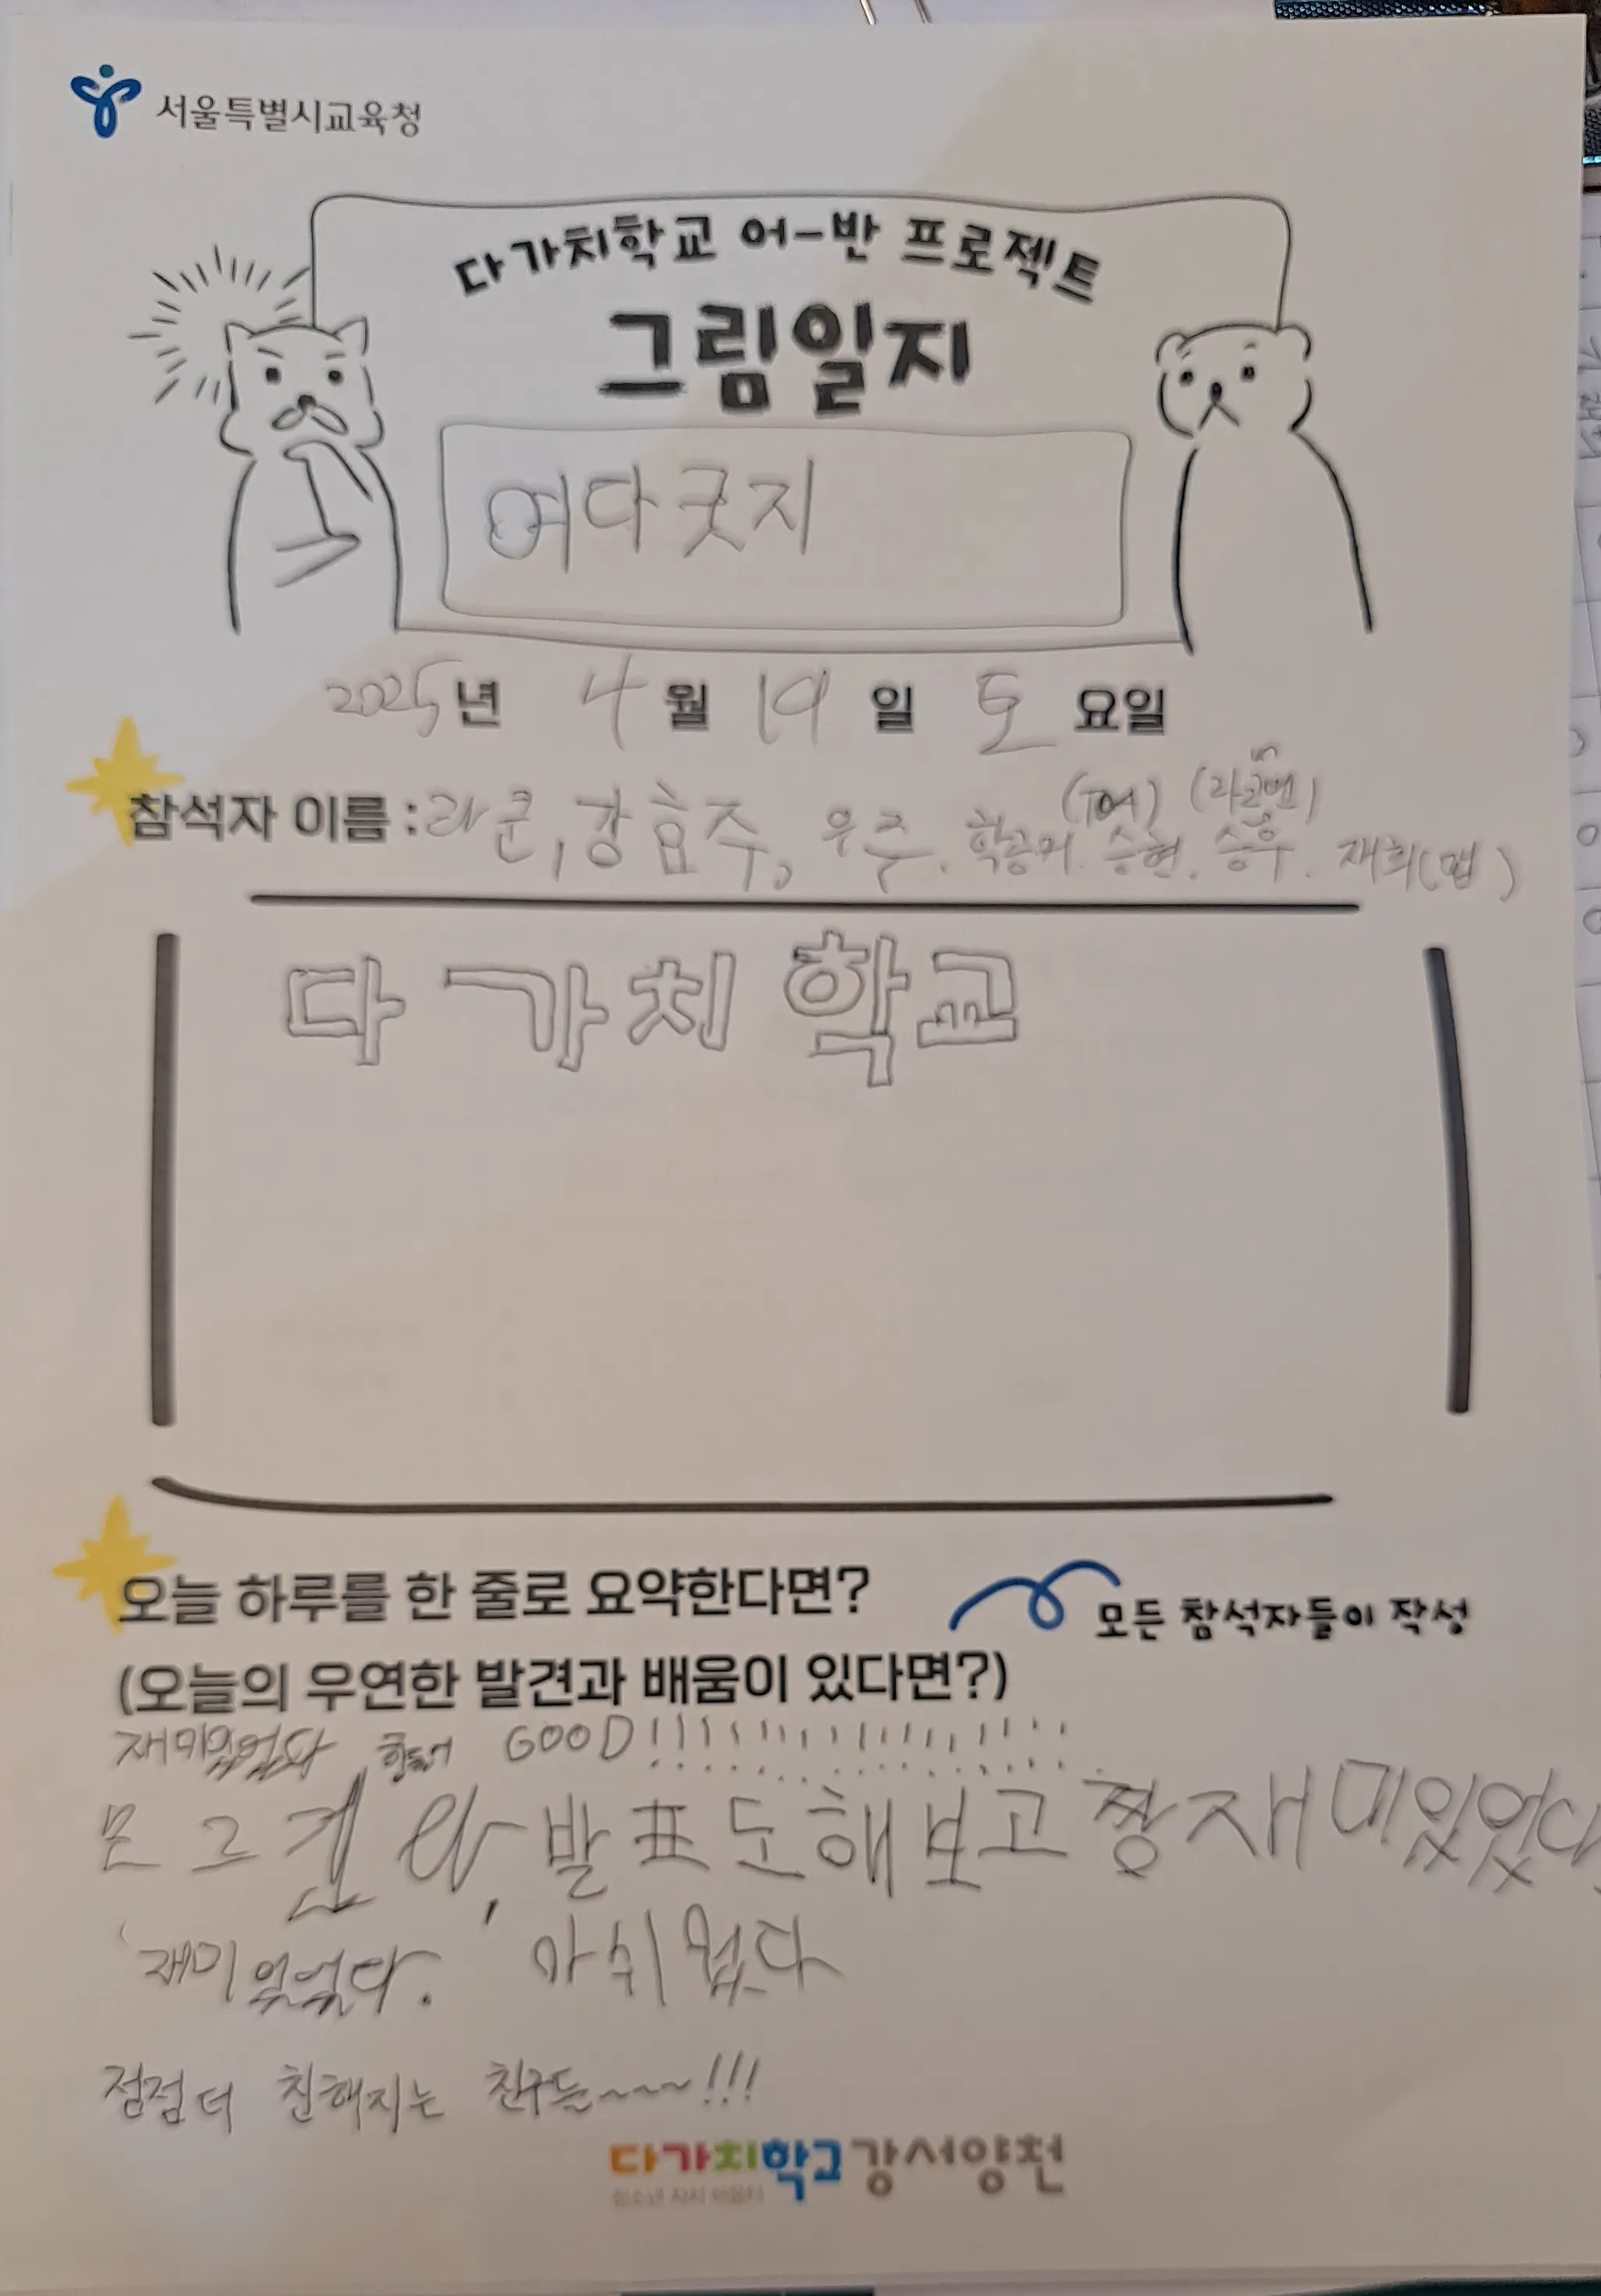 서울특별시교육청
다가치학교 어-반 프로젝트
그림일지
여다긋지
2025년 4월 19일 토요일
참석자 이름 : 라쿤, 강효주, 우주. 학공기. 승현. 승우. 재희(맵)
다가치학교
오늘 하루를 한 줄로 요약한다면?
모든 참석자들이 작성
(오늘의 우연한 발견과 배움이 있다면?)
재미있었다 힘들어 GOOD!!!!!!!!!!!!!!!!!
발표도해보고 짱재미있었다
재미있었다. 아쉬웠다
점점더 친해지는 친구들~~~~!!!
다가치학교강서양천